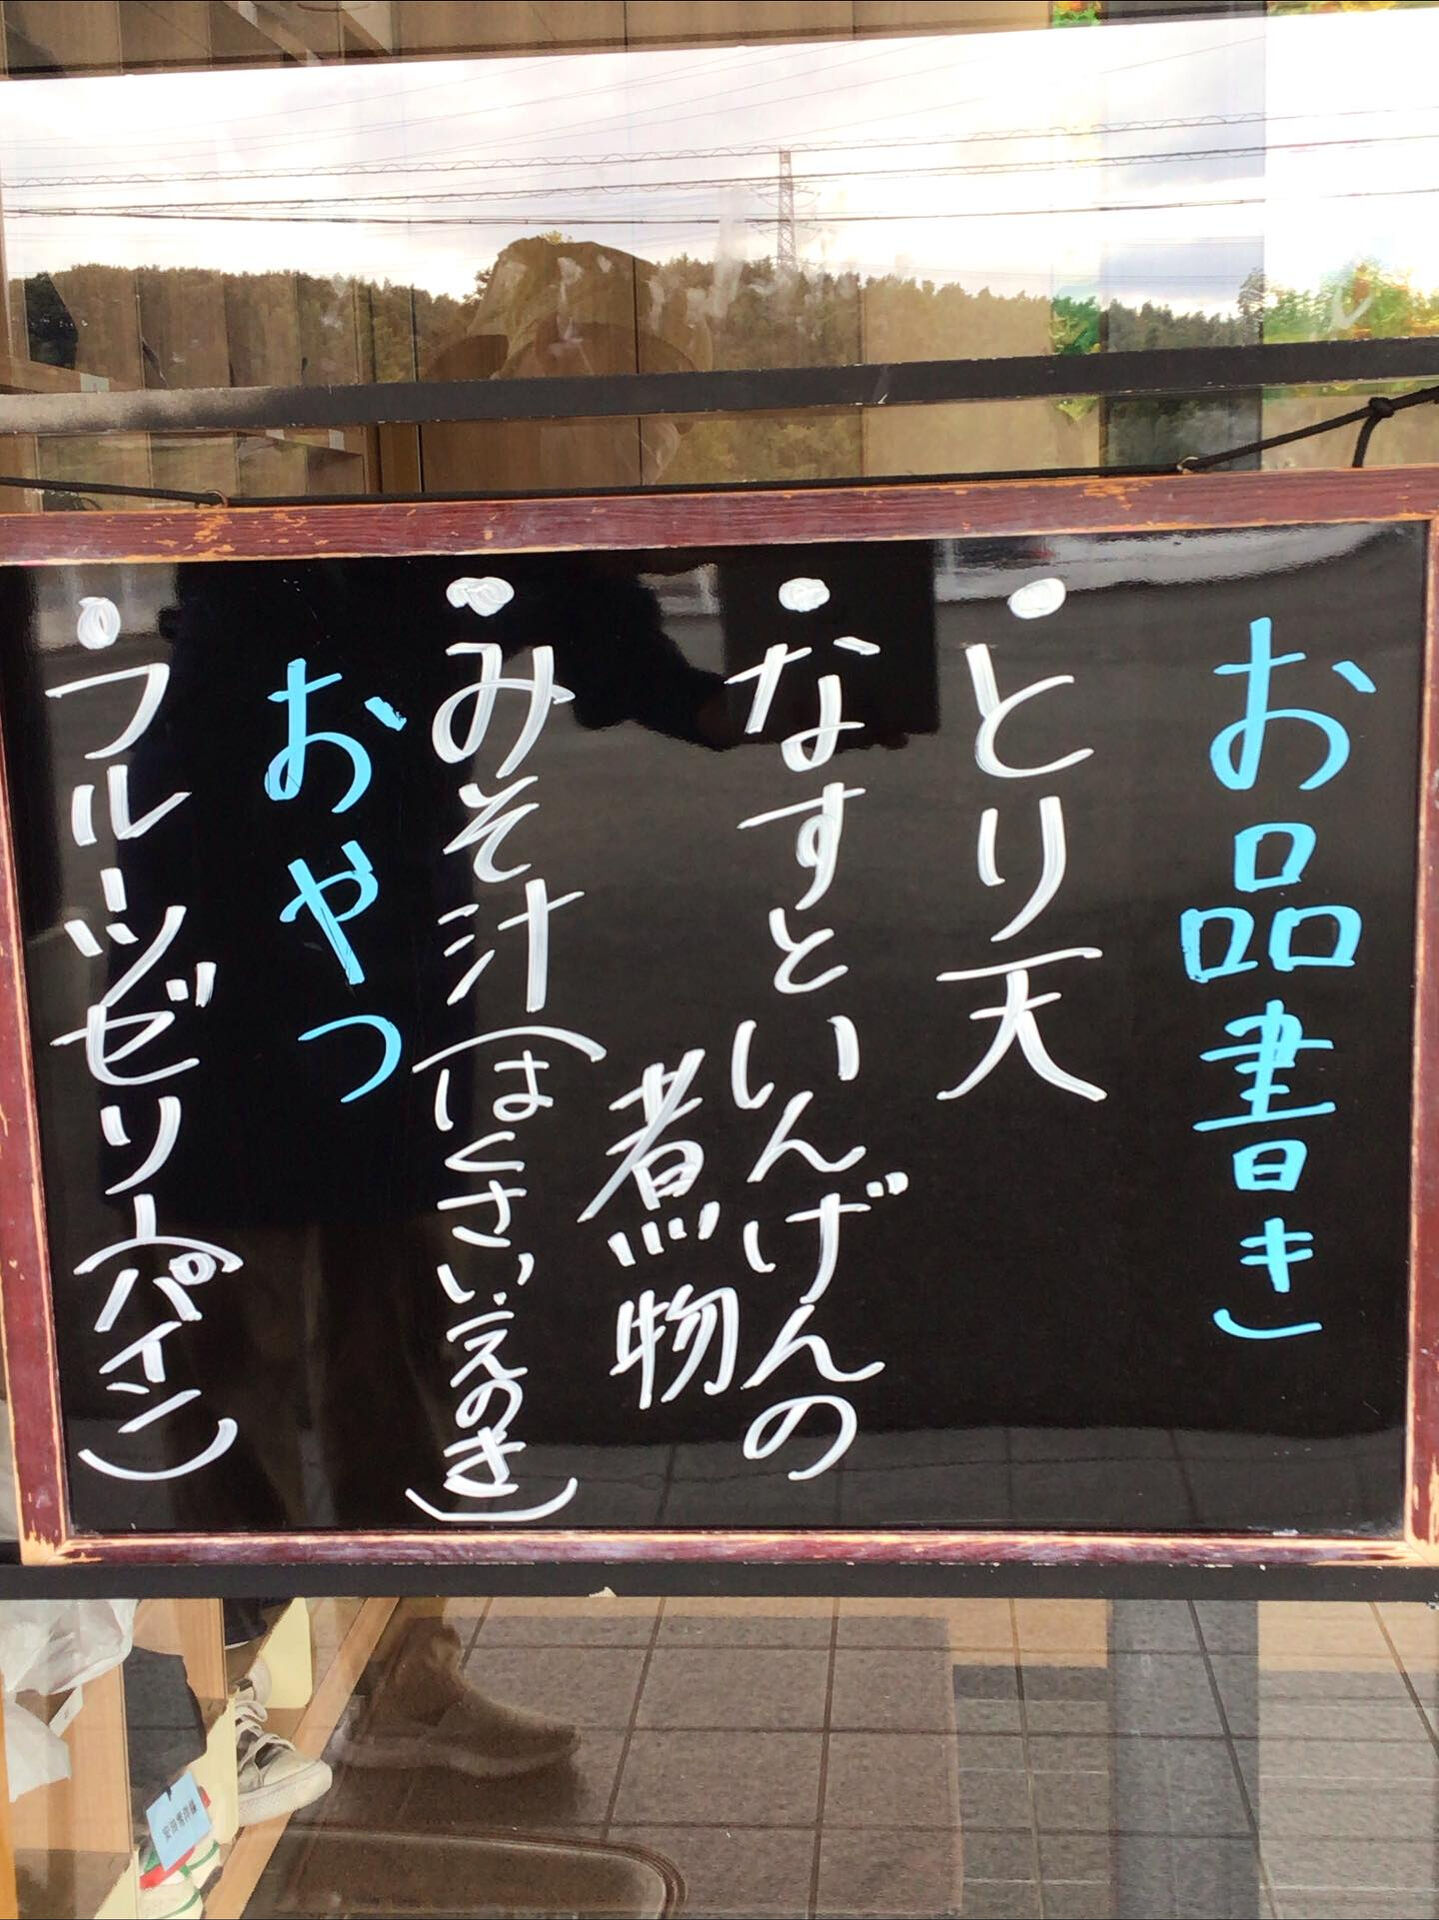 お品書き
・とり天
・なすといんげんの
煮物
・みそ汁(はくさい、えのき)
おやつ
・フルーツゼリー(パイン)